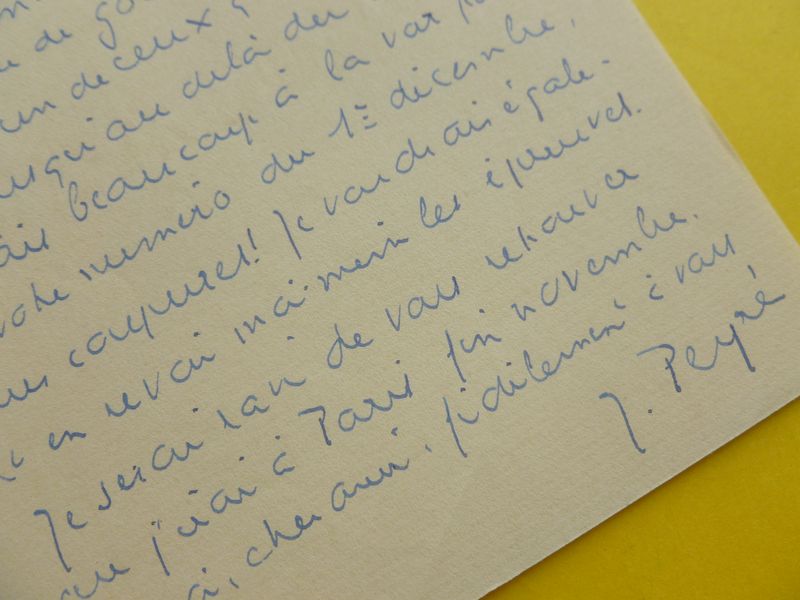 de
un de ceux
jusqu'au delà des
beaucoup à la voir
votre numéro du 1er décembre,
coupures! Je voudrais égale-
en revoir moi-même les épreuves.
Je serai ravi de vous retrouver
que j'irai à Paris fin novembre.
cher ami, fidèlement à vous
J. Peyré